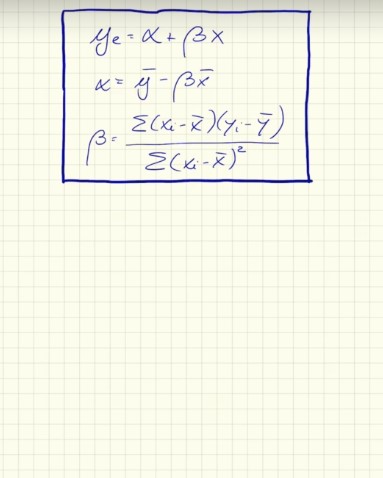 ye = α + βx
α = ȳ - βx̄
β = Σ(xi - x̄)(yi - ȳ) / Σ(xi - x̄)²